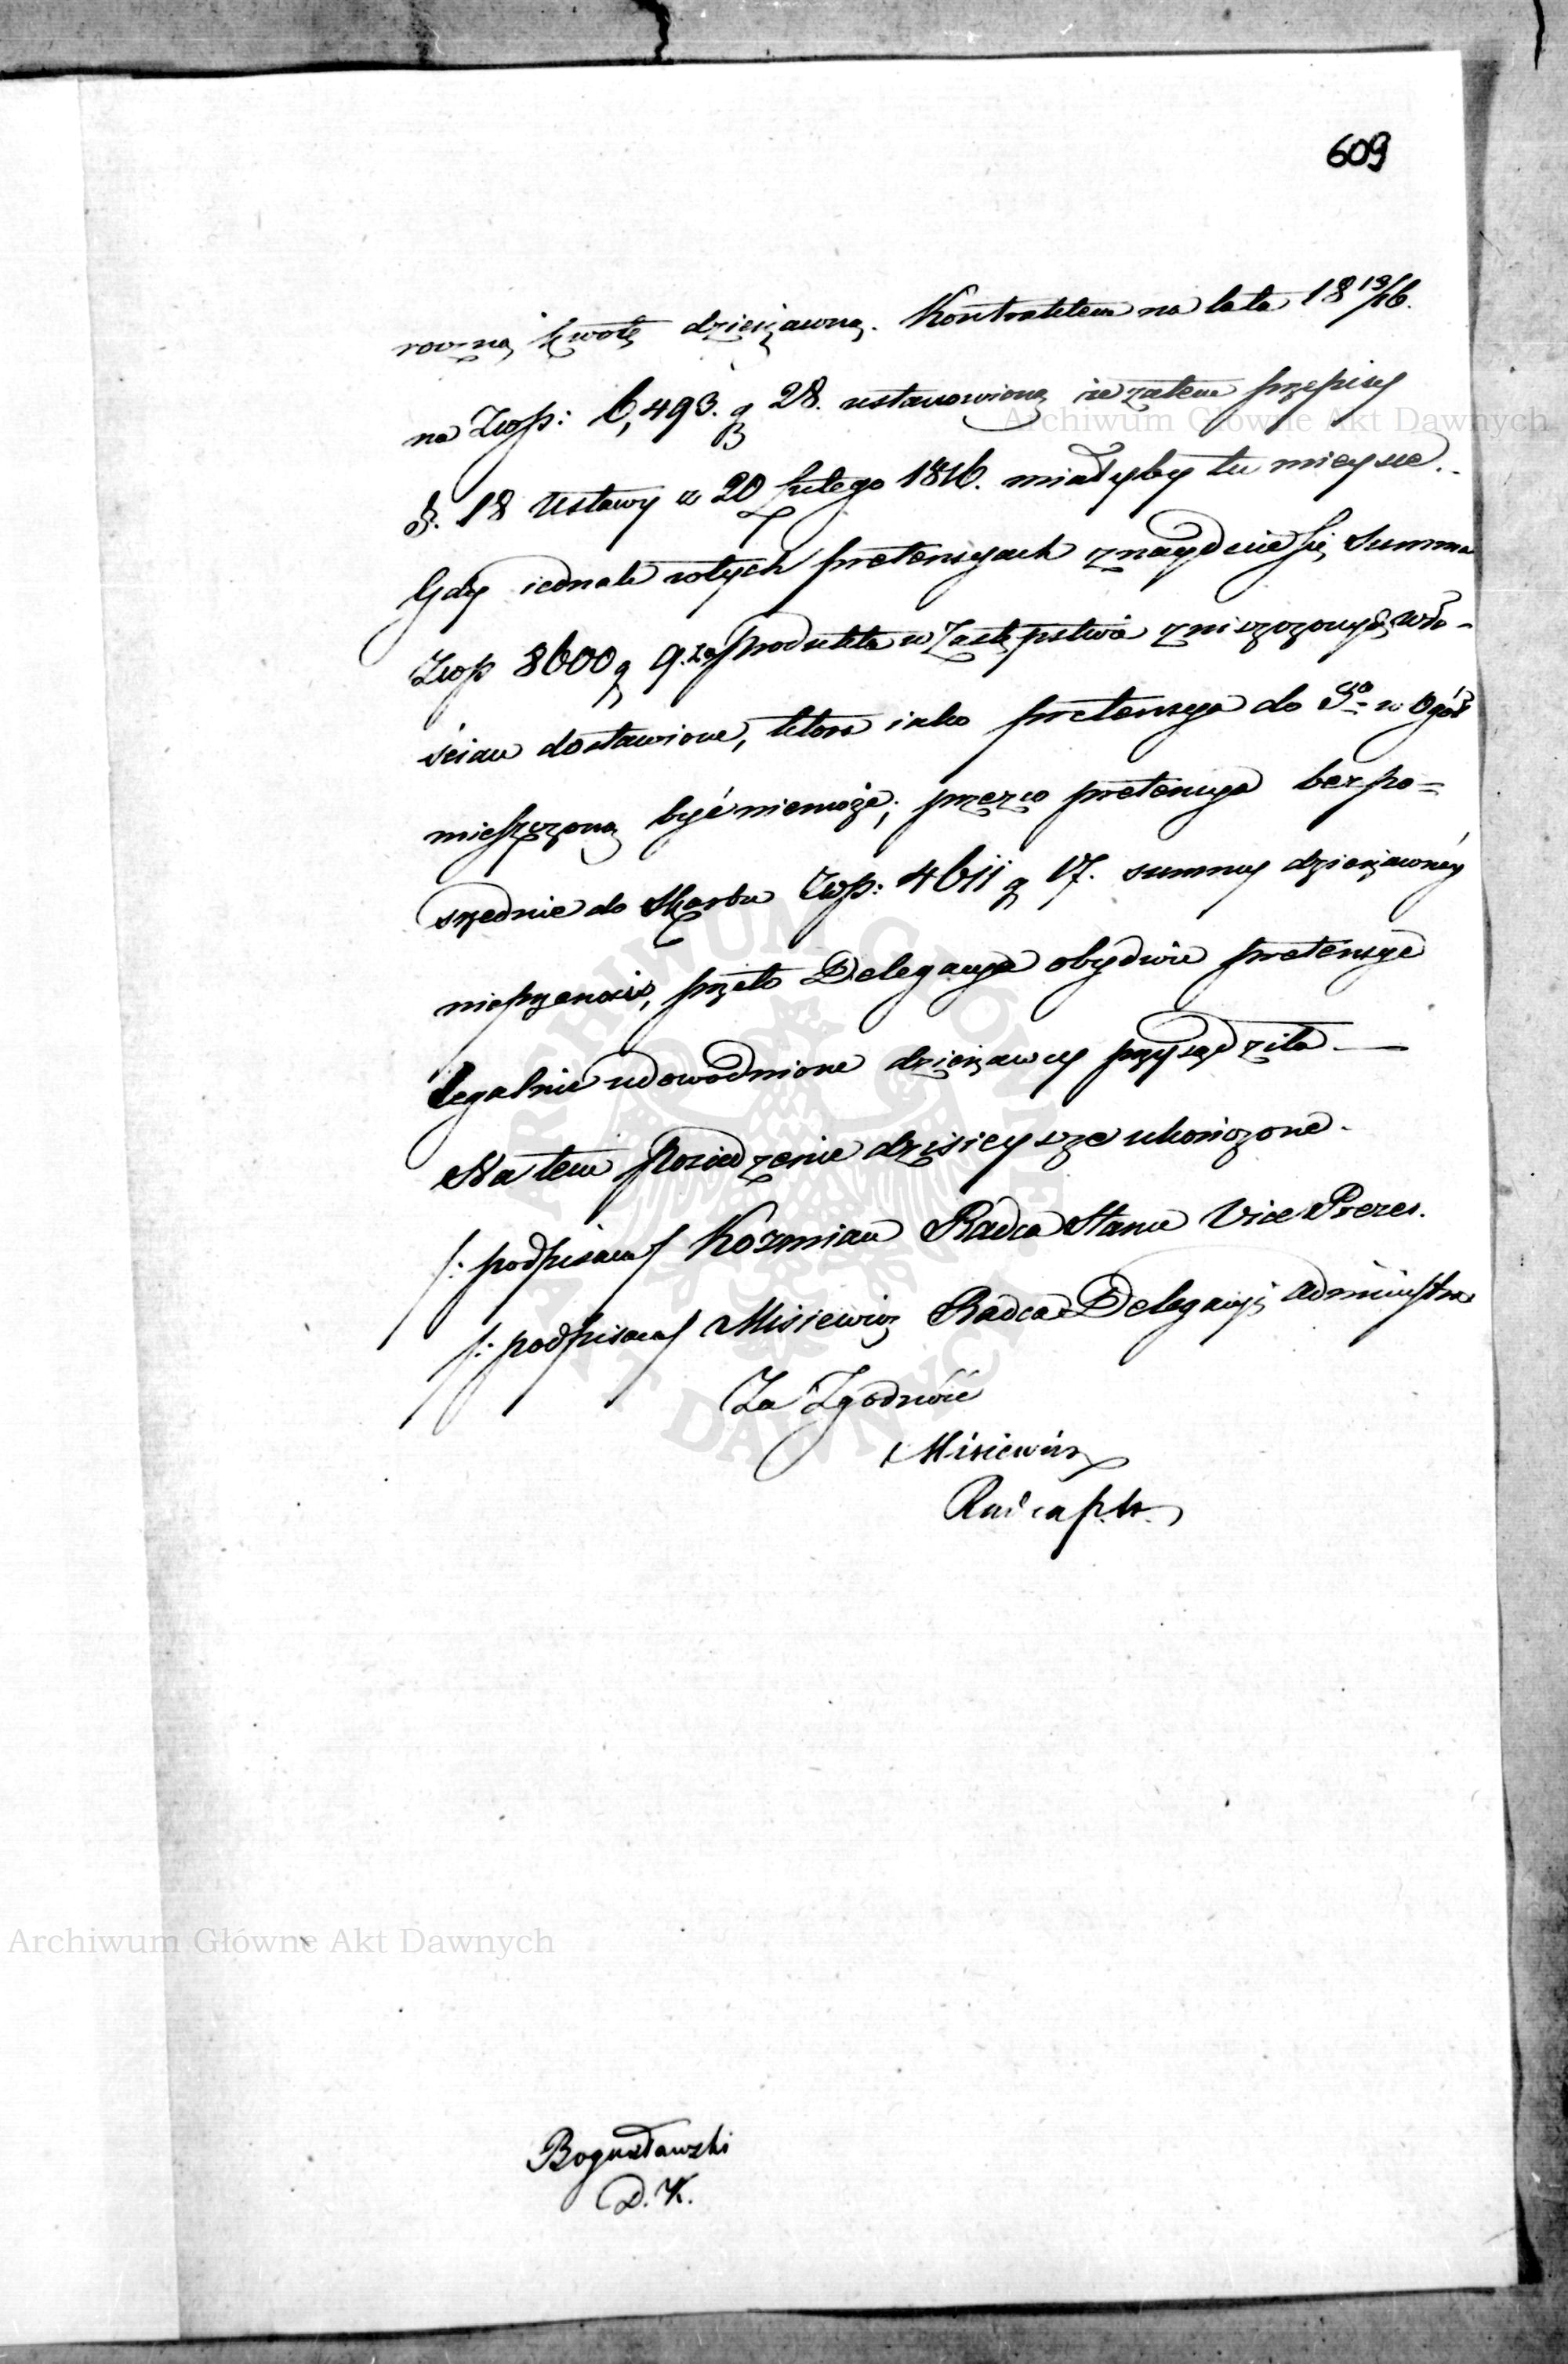 609
roczną kwotę dzierżawną. Kontraktem na lata 18 13/16.
na Złp: 6,493. g 28. ustanowioną że zatem przepisy
§. 18 Ustawy z 20 lutego 1816. miałyby tu mieysce.
Gdy iednak w tych pretensyach znayduie się Summa
Złp 3600 g 9. za Produkta w Zastępstwie zniszczonych wło-
ścian dostawione, która iako pretensya do
mieszczoną być niemoże; przezco pretensya bezpo=
srzednie do Skarbu Złp: 4611 g 17. summy dzierżawnéy
nieprzenosi, przeto Delegacya obydwie pretensye
legalnie udowodnione dzierżawcy przysądziła —
Na tem Posiedzenie dzisieysze ukończone.
/: podpisano/ Kozmian Radca Stanu Vice Prezes.
/: podpisano/ Misiewicz Radca Delegacyi Administra
Za Zgodność
Misiewicz
Radca
Bogusławski
D. K.
Archiwum Główne Akt Dawnych
Archiwum Główne Akt Dawnych
ARCHIWUM GŁÓWNE AKT DAWNYCH